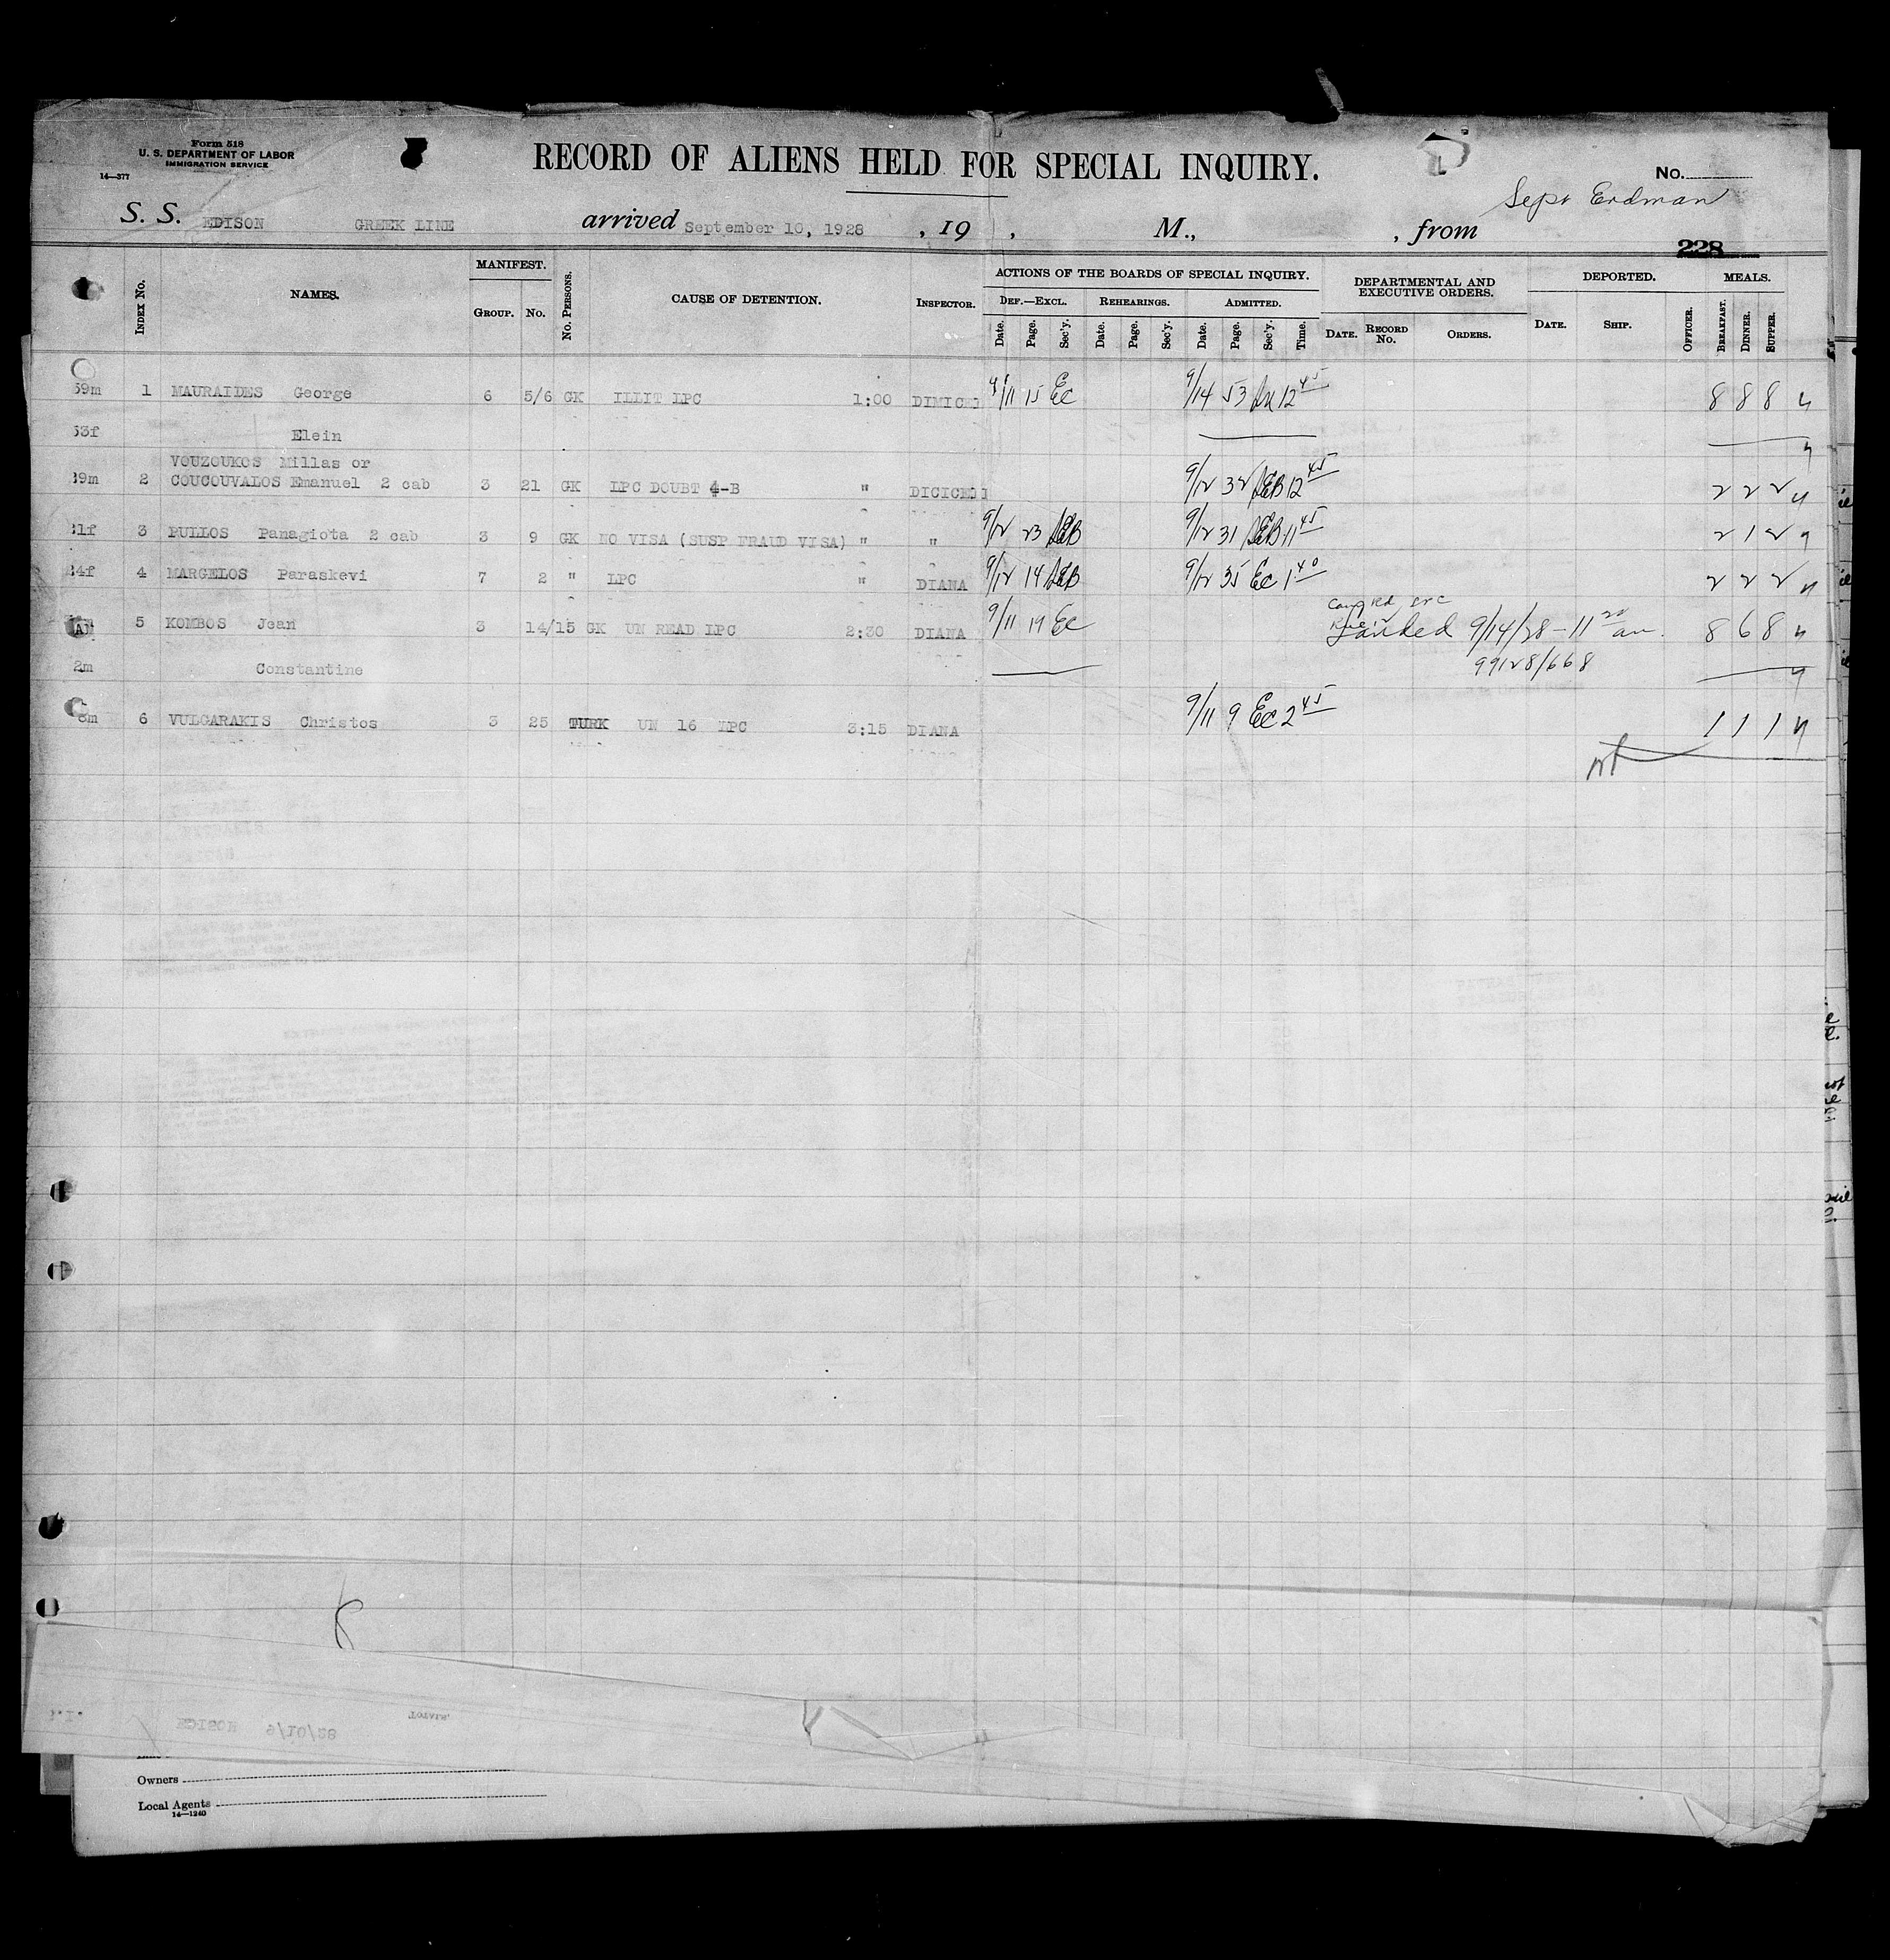 Form 518
U. S. DEPARTMENT OF LABOR
IMMIGRATION SERVICE
14—377
RECORD OF ALIENS HELD FOR SPECIAL INQUIRY.
No.
Sept Erdman
S. S. EDISON GREEK LINE arrived September 10, 1928 , 19 , M., , from
228
INDEX No. NAMES. MANIFEST. GROUP. No. No. PERSONS. CAUSE OF DETENTION. INSPECTOR. ACTIONS OF THE BOARDS OF SPECIAL INQUIRY. DEF.—EXCL. REHEARINGS. ADMITTED. DEPARTMENTAL AND EXECUTIVE ORDERS. DEPORTED. MEALS.
Date. Page. Sec'y. Date. Page. Sec'y. Date. Page. Sec'y. Time. DATE. RECORD No. ORDERS. DATE. SHIP. OFFICER. BREAKFAST. DINNER. SUPPER.
59m 1 MAURAIDES George 6 5/6 GK ILLIT LPC 1:00 9/11 15 EC 9/14 53 12 45 8 8 8
53f Elein
VOUZOUKOS Millas or
39m 2 COUCOUVALOS Emanuel 2 cab 3 21 GK LPC DOUBT 4-B " 9/12 32 12 45 2 2 2
1f 3 PULLOS Panagiota 2 cab 3 9 GK NO VISA (SUSP FRAUD VISA) " " 9/12 23 9/12 31 11 45 2 1 2
4f 4 MARGELOS Paraskevi 7 2 " LPC " DIANA 9/12 14 9/12 35 EC 1 40 2 2 2
5 KOMBOS Jean 3 14/15 GK UN READ LPC 2:30 DIANA 9/11 19 EC Landed 9/14/28 - 11 20 am. 8 6 8
2m Constantine 99128/668
8m 6 VULGARAKIS Christos 3 25 TURK UN 16 LPC 3:15 DIANA 9/11 9 EC 2 45 1 1 1
Owners
Local Agents
14—1240